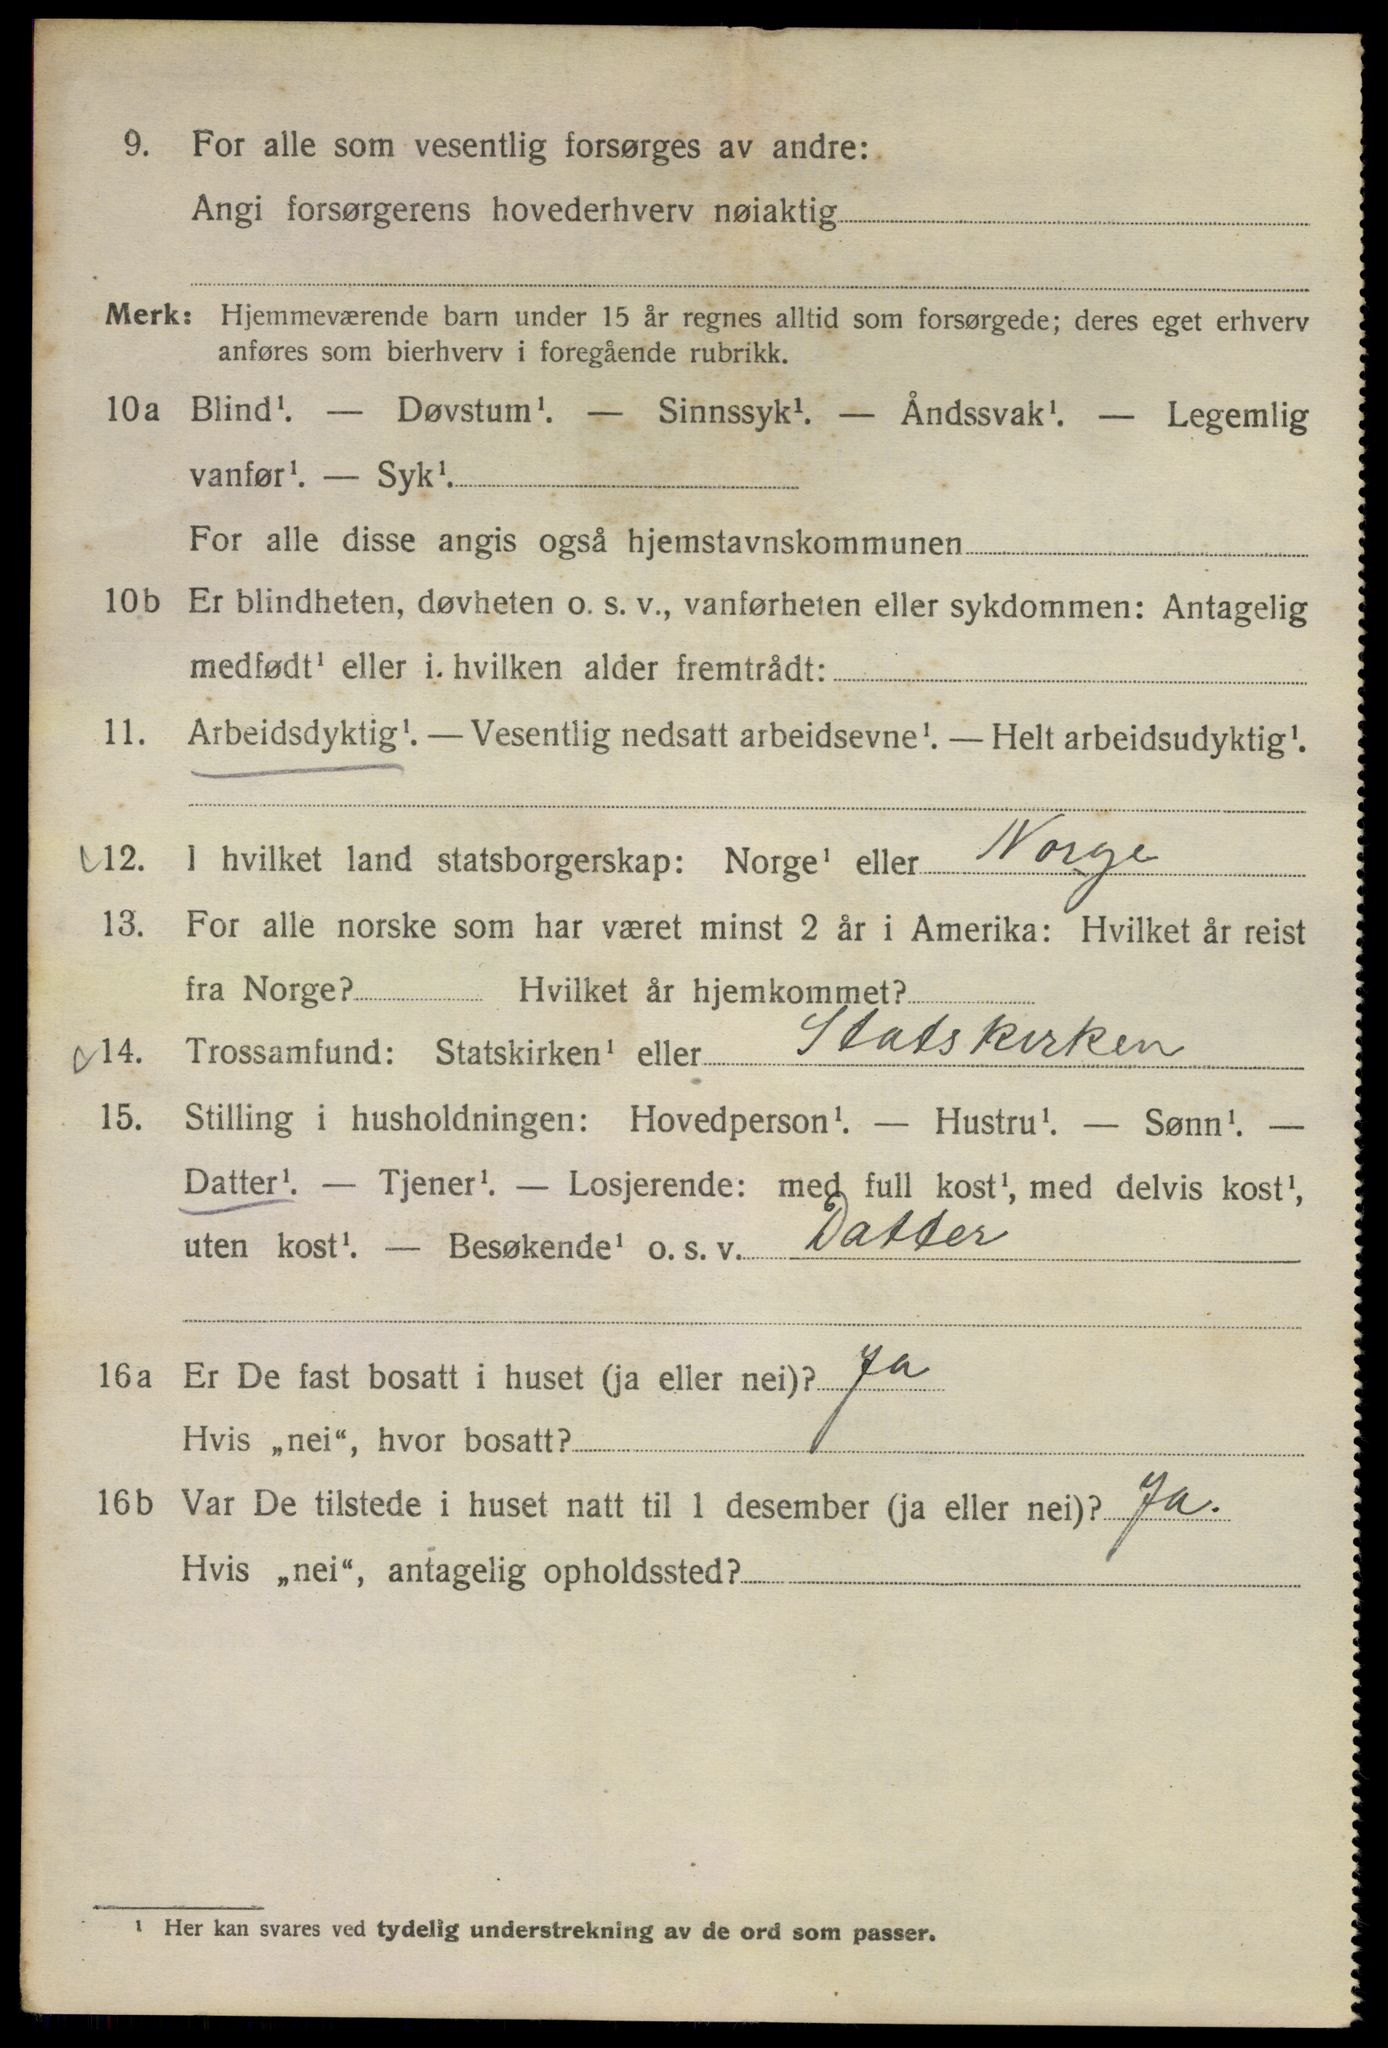 9. For alle som vesentlig forsørges av andre:
Angi forsørgerens hovederhverv nøiaktig
Merk: Hjemmeværende barn under 15 år regnes alltid som forsørgede; deres eget erhverv
anføres som bierhverv i foregående rubrikk.
10a Blind¹. — Døvstum¹. — Sinnssyk¹. — Åndssvak¹. — Legemlig
vanfør¹. — Syk¹.
For alle disse angis også hjemstavnskommunen
10b Er blindheten, døvheten o. s. v., vanførheten eller sykdommen: Antagelig
medfødt¹ eller i. hvilken alder fremtrådt:
11. Arbeidsdyktig¹. — Vesentlig nedsatt arbeidsevne¹. — Helt arbeidsudyktig¹.
12. I hvilket land statsborgerskap: Norge¹ eller Norge
13. For alle norske som har været minst 2 år i Amerika: Hvilket år reist
fra Norge? Hvilket år hjemkommet?
14. Trossamfund: Statskirken¹ eller Statskirken
15. Stilling i husholdningen: Hovedperson¹. — Hustru¹. — Sønn¹. —
Datter¹. — Tjener¹. — Losjerende: med full kost¹, med delvis kost¹,
uten kost¹. — Besøkende¹ o. s. v. Datter
16a Er De fast bosatt i huset (ja eller nei)? Ja
Hvis „nei“, hvor bosatt?
16b Var De tilstede i huset natt til 1 desember (ja eller nei)? Ja.
Hvis „nei“, antagelig opholdssted?
¹ Her kan svares ved tydelig understrekning av de ord som passer.